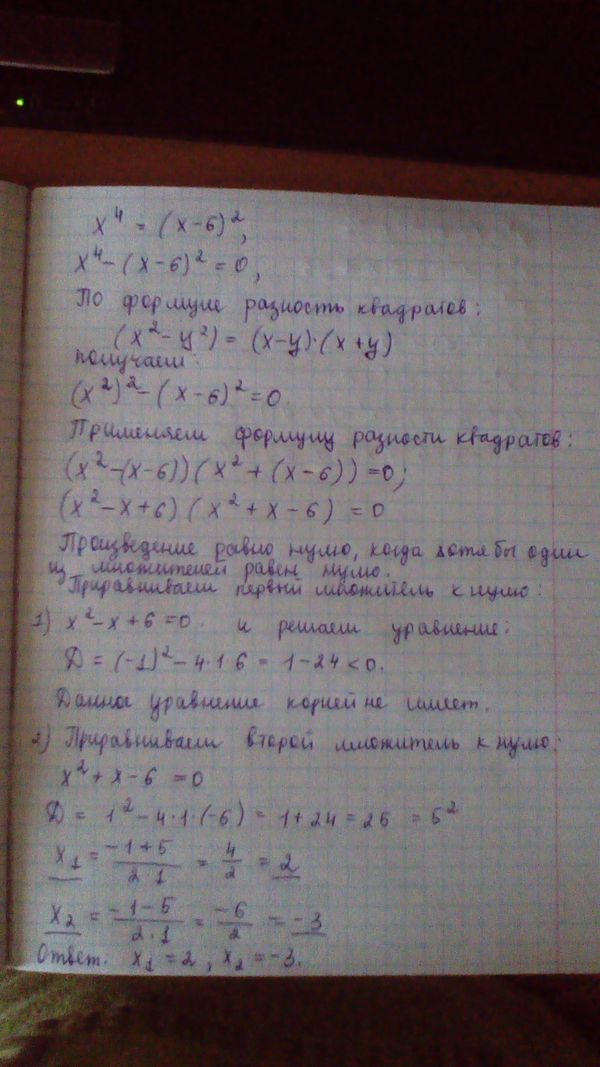 x⁴ = (x-6)²,
x⁴-(x-6)²=0,
По формуле разность квадратов:
(x²-y²) = (x-y)·(x+y)
получаем:
(x²)²-(x-6)²=0.
Применяем формулу разности квадратов:
(x²-(x-6))(x²+(x-6))=0;
(x²-x+6)(x²+x-6)=0
Произведение равно нулю, когда хотя бы один
из множителей равен нулю.
Приравниваем первый множитель к нулю:
1) x²-x+6=0. и решаем уравнение:
Д = (-1)²-4·1·6 = 1-24<0.
Данное уравнение корней не имеет.
2) Приравниваем второй множитель к нулю:
x²+x-6 =0
Д = 1²-4·1·(-6) = 1+24=25 = 5²
x₁ = (-1+5)/(2·1) = 4/2 = 2
x₂ = (-1-5)/(2·1) = -6/2 = -3
Ответ. x₁=2, x₂=-3.